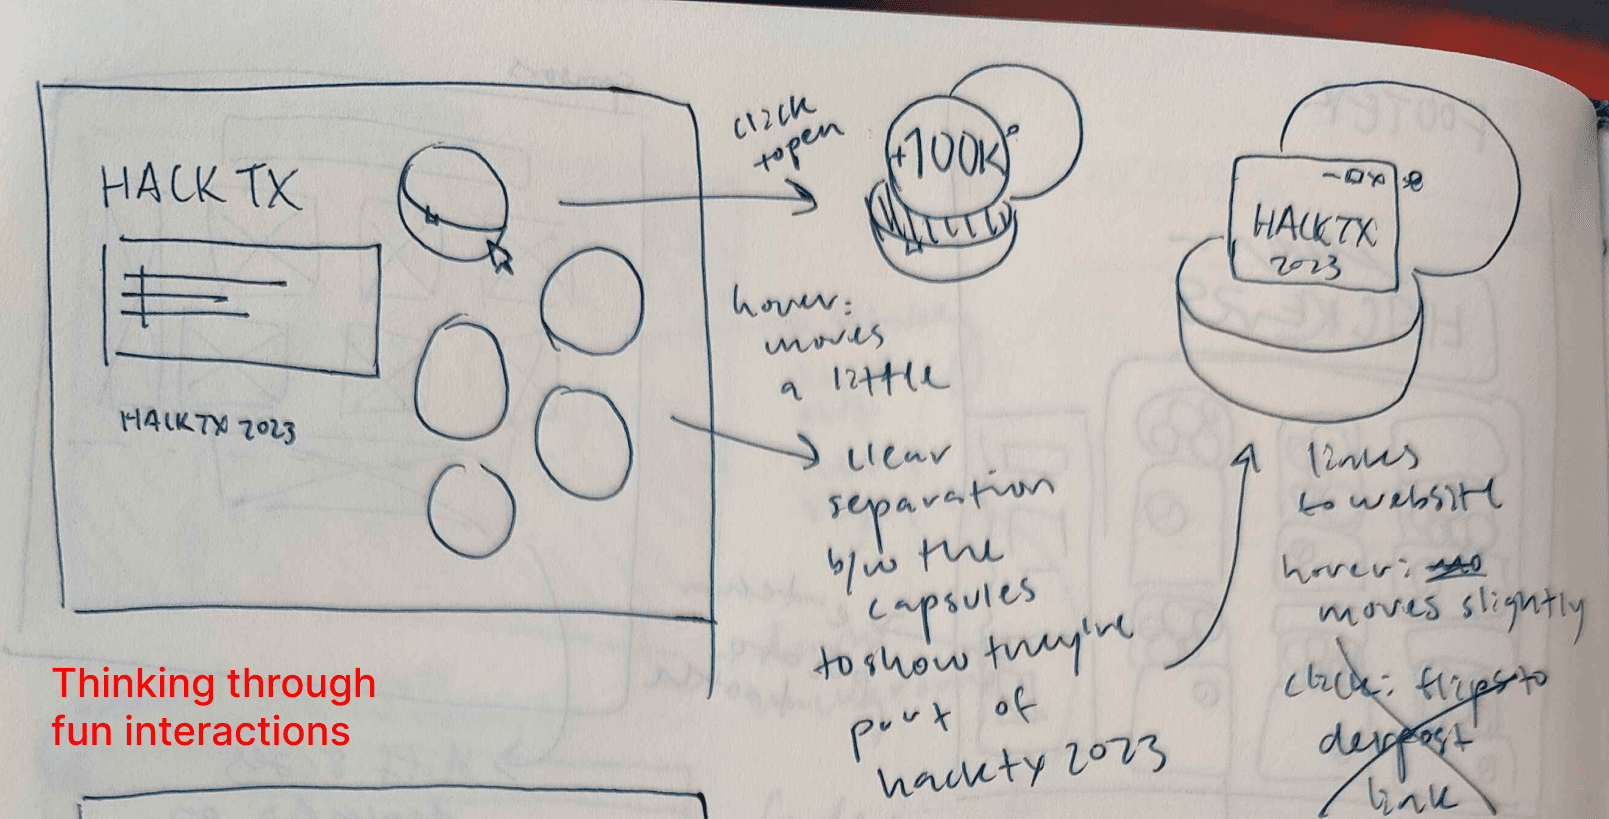 HACK TX
HACKTX 2023
click
topen
+100K
hover:
moves
a little
clear
separation
b/w the
capsules
to show they're
part of
hacktx 2023
HACKTX
2023
links
to website
hover:
moves slightly
click: flips to
link
Thinking through
fun interactions
FOOTER